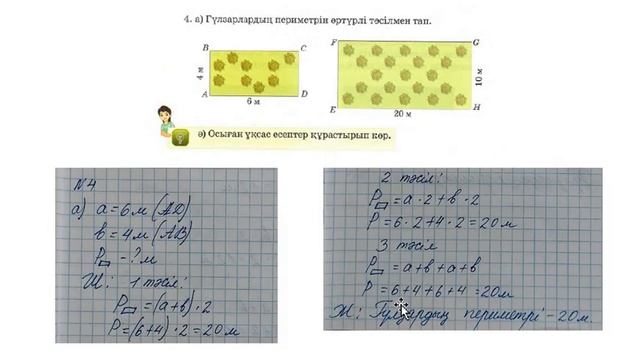 4. а) Гүлзарлардың периметрін әртүрлі тәсілмен тап.
B C
4 м
A D
6 м
F G
10 м
E H
20 м
ә) Осыған ұқсас есептер құрастырып көр.
N4
а) a = 6 м (AD)
b = 4 м (AB)
P▭ - ? м
Ш: 1 тәсіл:
P▭ = (a+b) · 2
P = (6+4) · 2 = 20 м
2 тәсіл:
P▭ = a · 2 + b · 2
P = 6 · 2 + 4 · 2 = 20 м
3 тәсіл
P▭ = a+b+a+b
P = 6+4+6+4 = 20 м
Ж: Гүлзардың периметрі - 20 м.